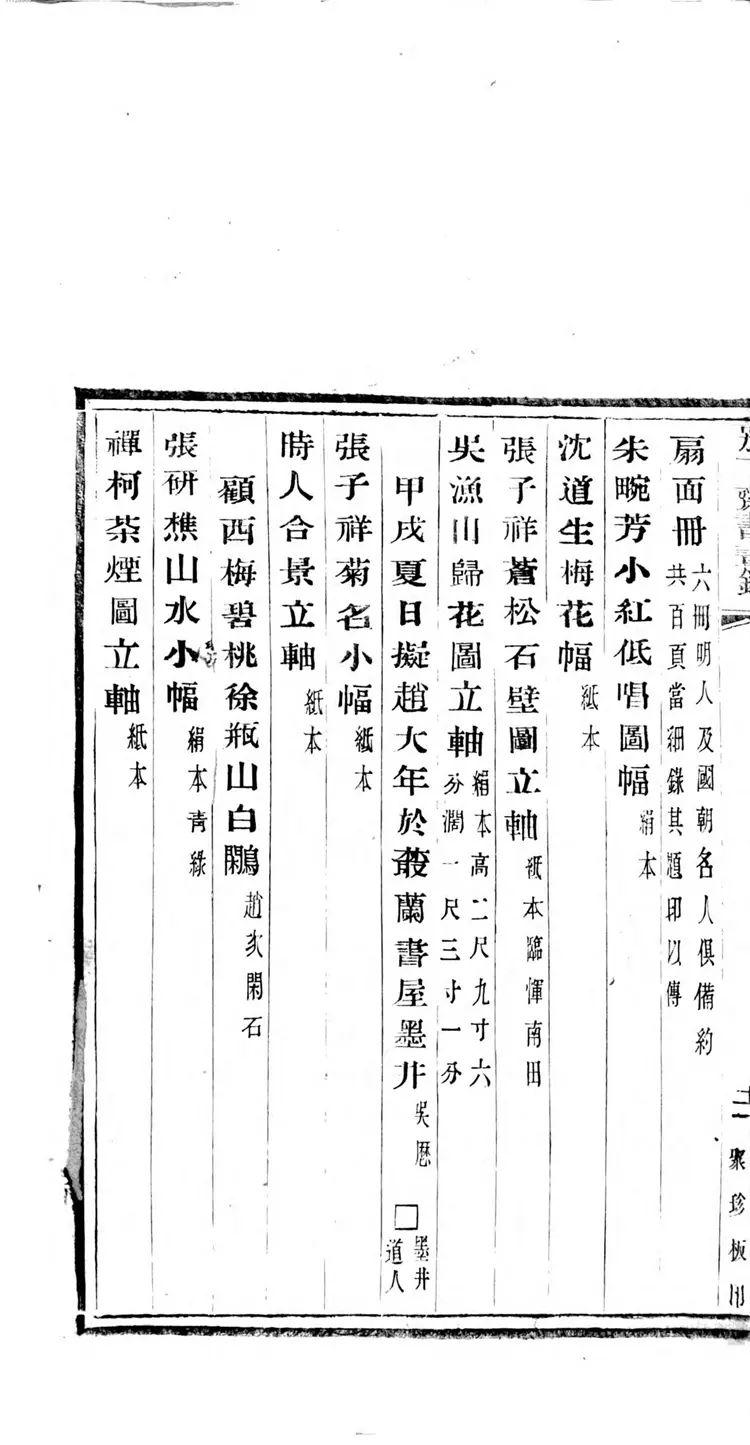 書畫錄
二十一 聚珍板
扇面冊 六冊明人及國朝名人俱備約共百頁當細錄其題印以傳
朱畹芳小紅低唱圖幅 絹本
沈道生梅花幅 紙本
張子祥蒼松石壁圖立軸 紙本臨惲南田
吳漁川歸花圖立軸 絹本高二尺九寸六分濶一尺三寸一分
甲戌夏日擬趙大年於叢蘭書屋墨井 吳歷 □ 墨井道人
張子祥菊名小幅 紙本
時人合景立軸 紙本
顧西梅碧桃徐瓶山白鷴 趙次閑石
張研樵山水小幅 絹本青綠
禪柯茶煙圖立軸 紙本